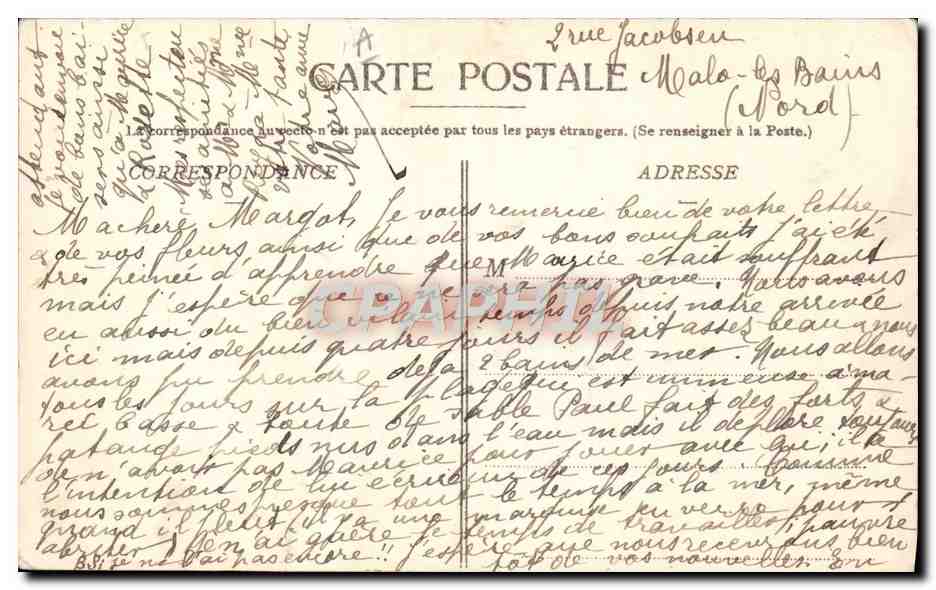 2 rue Jacobsen
Malo-les Bains
(Nord)
CARTE POSTALE
La correspondance au recto n'est pas acceptée par tous les pays étrangers. (Se renseigner à la Poste.)
CORRESPONDANCE
ADRESSE
M
CPAPHIL
Ma chère Margot, Je vous remercie bien de votre lettre
& de vos fleurs ainsi que de vos bons souhaits j'ai été
très peinée d'apprendre que Maurice était souffrant
mais j'espère que ce ne sera pas grave. Nous avons
eu aussi du bien vilain temps depuis notre arrivée
ici mais depuis quatre jours il fait assez beau & nous
avons pu prendre déjà 2 bains de mer. Nous allons
tous les jours sur la plage qui est immense à ma-
rée basse & toute de sable Paul fait des forts &
patauge pieds nus dans l'eau mais il déplore toujours
de n'avoir pas Maurice pour jouer avec lui; il a
l'intention de lui écrire un de ces jours. Comme
nous sommes presque tout le temps à la mer, même
quand il pleut il y a une marquise en verre pour s'
abriter, je n'ai guère le temps de travailler, pauvre
B.S. je ne l'ai pas encore!! J'espère que nous recevrons bien
tôt de vos nouvelles. En
attendant
je vous envoie
de bons bai-
sers ainsi
qu'à Maurice
& Rodolfe
Mes respectueu
ses amitiés
à M. & Mme
Votre tante
Marie